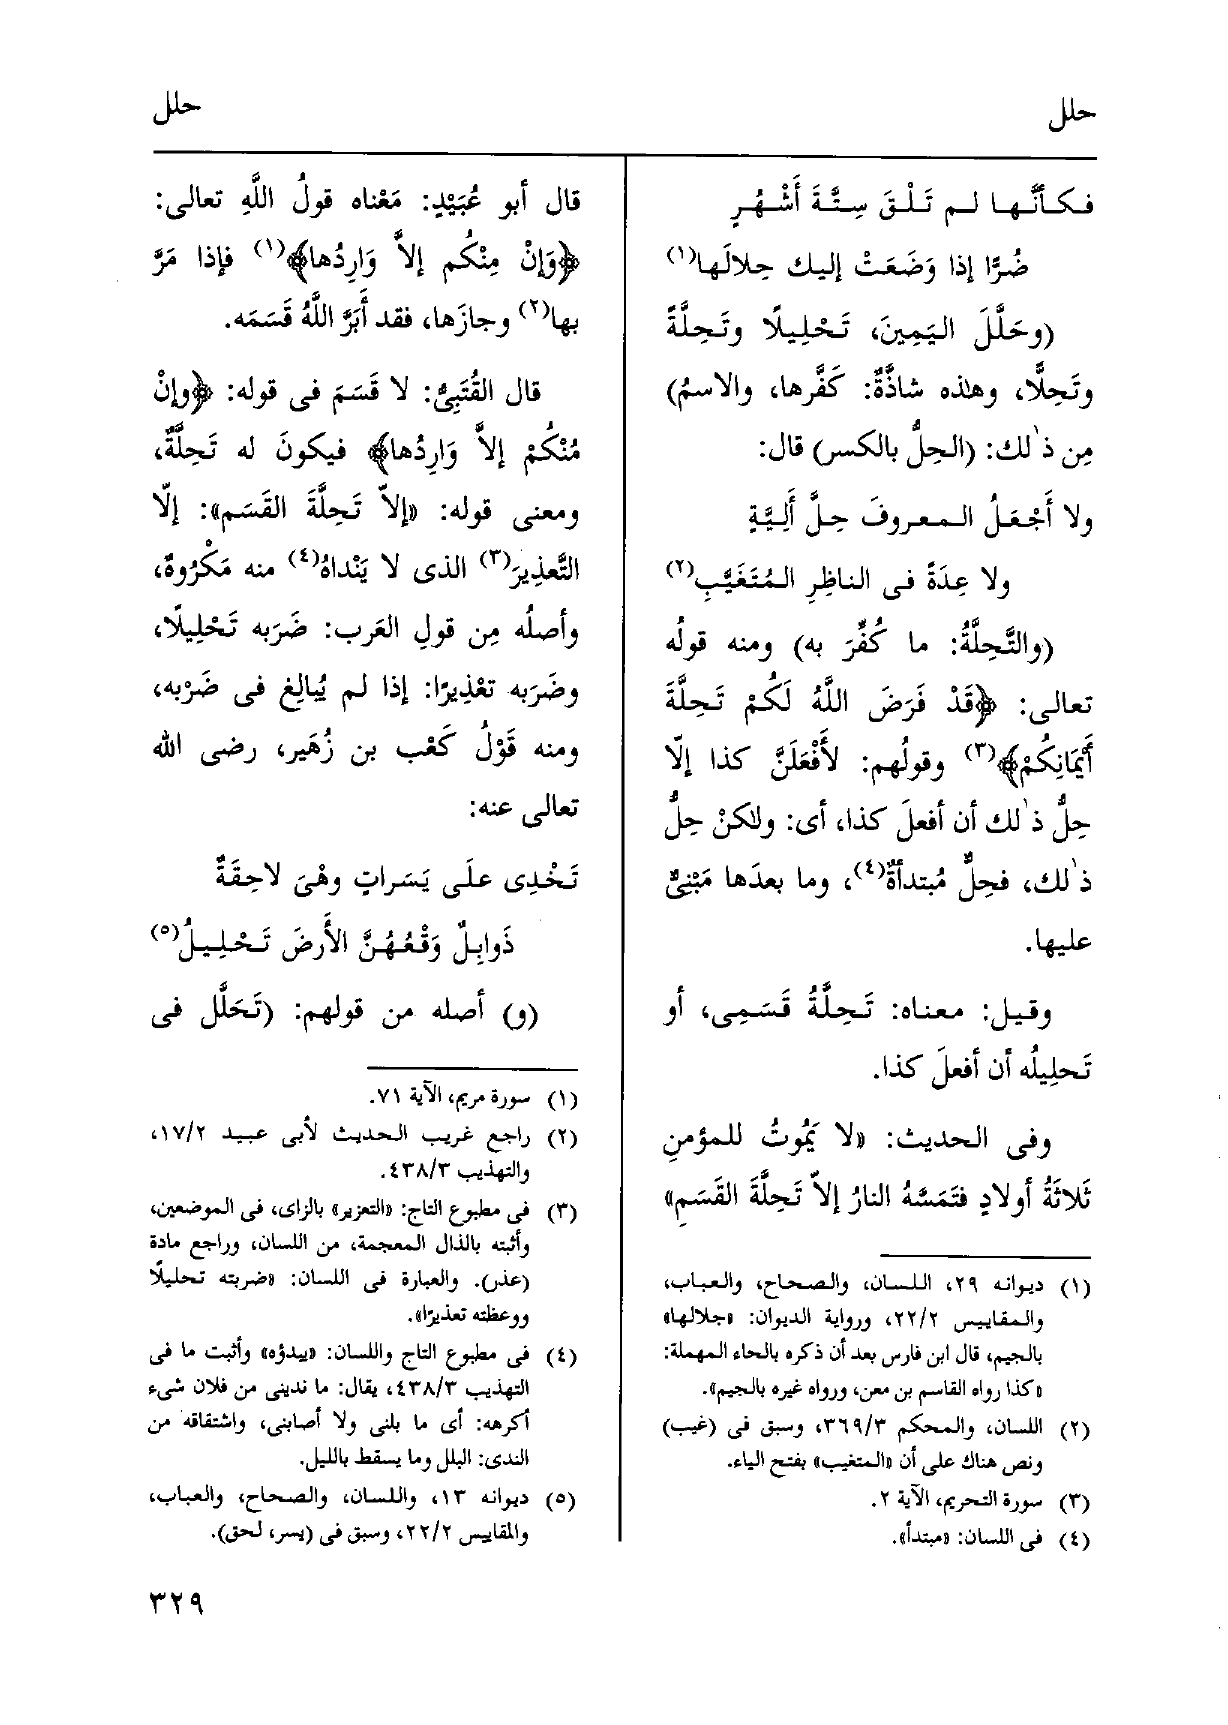 حلل
حلل
فكأنَّها لم تَلْقَ سِتَّةَ أَشْهُرٍ
ضُرًّا إذا وَضَعَتْ إليك حِلالَها(١)
(وحَلَّلَ اليَمِينَ، تَحْلِيلًا وتَحِلَّةً
وتَحِلًّا، وهذه شاذَّةٌ: كَفَّرها، والاسمُ)
مِن ذٰلك: (الحِلُّ بالكسر) قال:
ولا أَجْعَلُ المعروفَ حِلَّ أَلِيَّةٍ
ولا عِدَةً فى الناظِرِ المُتَغَيَّبِ(٢)
(والتَّحِلَّةُ: ما كُفِّرَ به) ومنه قولُه
تعالى: ﴿قَدْ فَرَضَ اللَّهُ لَكُمْ تَحِلَّةَ
أَيْمَانِكُمْ﴾(٣) وقولُهم: لأَفْعَلَنَّ كذا إلّا
حِلُّ ذٰلك أن أفعلَ كذا، أى: ولكنْ حِلُّ
ذٰلك، فحِلٌّ مُبتدأةٌ(٤)، وما بعدَها مَبْنِىٌّ
عليها.
وقيل: معناه: تَحِلَّةُ قَسَمِى، أو
تَحلِيلُه أن أفعلَ كذا.
وفى الحديث: «لا يَمُوتُ للمؤمنِ
ثَلاثَةُ أولادٍ فتَمَسَّهُ النارُ إلاّ تَحِلَّةَ القَسَمِ»
(١) ديوانه ٢٩، اللسان، والصحاح، والعباب،
والمقاييس ٢٢/٢، ورواية الديوان: «جلالها»
بالجيم، قال ابن فارس بعد أن ذكره بالحاء المهملة:
«كذا رواه القاسم بن معن، ورواه غيره بالجيم».
(٢) اللسان، والمحكم ٣٦٩/٣، وسبق فى (غيب)
ونص هناك على أن «المتغيب» بفتح الياء.
(٣) سورة التحريم، الآية ٢.
(٤) فى اللسان: «مبتدأ».
قال أبو عُبَيْدٍ: مَعْناه قولُ اللَّهِ تعالى:
﴿وَإنْ مِنْكُم إلاَّ وَارِدُها﴾(١) فإذا مَرَّ
بها(٢) وجازَها، فقد أَبَرَّ اللَّهُ قَسَمَه.
قال القُتَبِىُّ: لا قَسَمَ فى قوله: ﴿وإنْ
مُنْكُمْ إلاَّ وَارِدُها﴾ فيكونَ له تَحِلَّةٌ،
ومعنى قوله: «إلاّ تَحِلَّةَ القَسَم»: إلّا
التَّعذِيرَ(٣) الذى لا يَنْداهُ(٤) منه مَكْرُوهٌ،
وأصلُه مِن قولِ العَرب: ضَرَبه تَحْلِيلًا،
وضَرَبه تعْذِيرًا: إذا لم يُبالِغ فى ضَرْبِه،
ومنه قَوْلُ كَعْب بن زُهَير، رضى الله
تعالى عنه:
تَخْدِى علَى يَسَراتٍ وهْىَ لاحِقَةٌ
ذَوابِلٌ وَقْعُهُنَّ الأَرضَ تَحْلِيلُ(٥)
(و) أصله من قولهم: (تَحَلَّل فى
(١) سورة مريم، الآية ٧١.
(٢) راجع غريب الحديث لأبى عبيد ١٧/٢،
والتهذيب ٤٣٨/٣.
(٣) فى مطبوع التاج: «التعزير» بالزاى، فى الموضعين،
وأثبته بالذال المعجمة، من اللسان، وراجع مادة
(عذر). والعبارة فى اللسان: «ضربته تحليلًا
ووعظته تعذيرًا».
(٤) فى مطبوع التاج واللسان: «يبدؤه» وأثبت ما فى
التهذيب ٤٣٨/٣، يقال: ما ندينى من فلان شىء
أكرهه: أى ما بلنى ولا أصابنى، واشتقاقه من
الندى: البلل وما يسقط بالليل.
(٥) ديوانه ١٣، واللسان، والصحاح، والعباب،
والمقاييس ٢٢/٢، وسبق فى (يسر، لحق).
٣٢٩